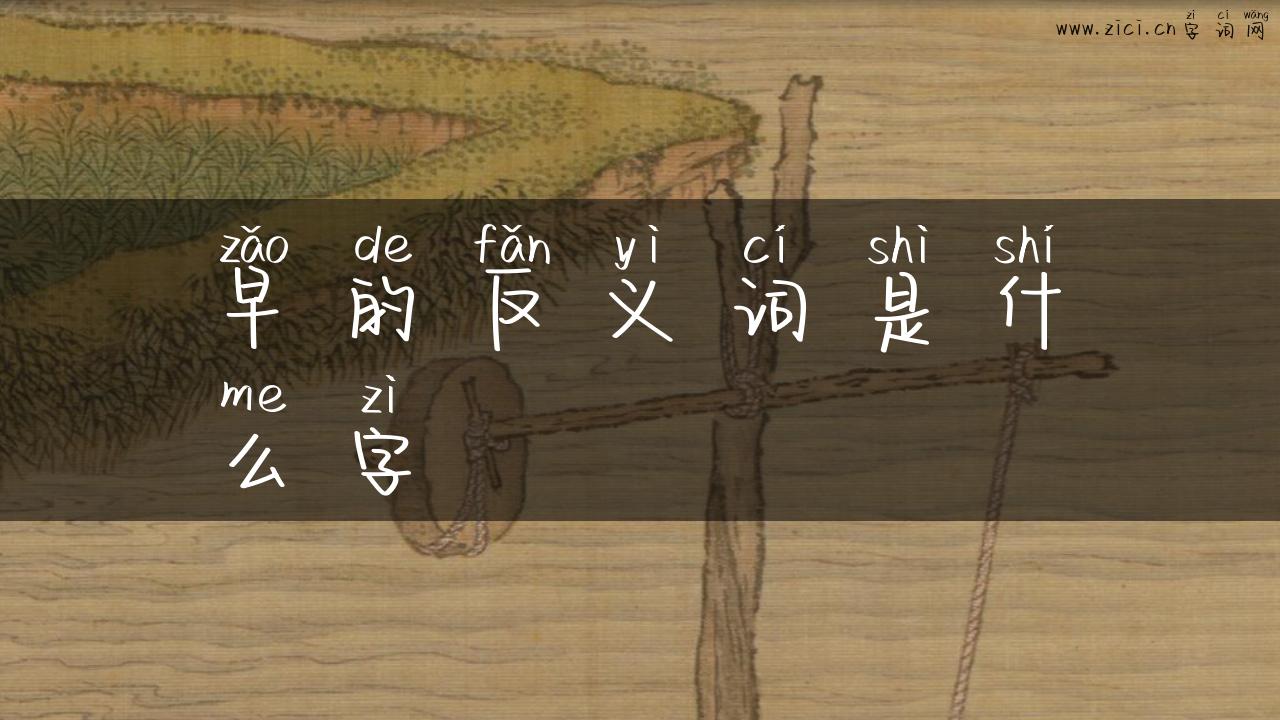 zì cí wǎng
www.zici.cn 字词网
zǎo de fǎn yì cí shì shí
早的反义词是什
me zì
么字